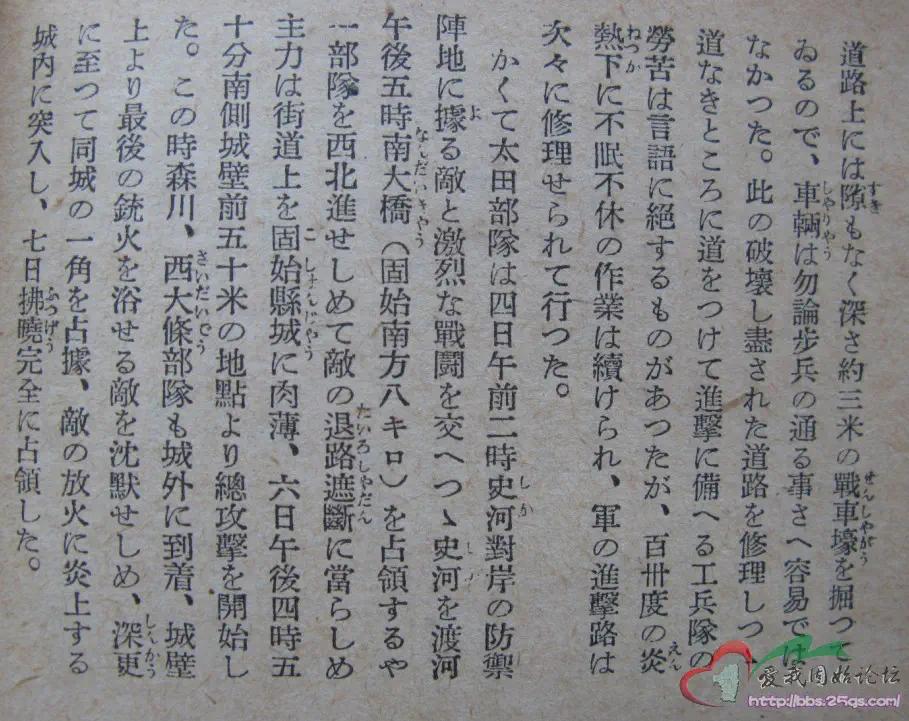 道路上には隙もなく深さ約三米の戰車壕を掘つて
ゐるので、車輛は勿論步兵の通る事さへ容易では
なかつた。此の破壞し盡された道路を修理しつゝ
道なきところに道をつけて進擊に備へる工兵隊の
勞苦は言語に絕するものがあつたが、百卅度の炎
熱下に不眠不休の作業は續けられ、軍の進擊路は
次々に修理せられて行つた。
かくて太田部隊は四日午前二時史河對岸の防禦
陣地に據る敵と激烈な戰鬪を交へつゝ史河を渡河
午後五時南大橋（固始南方八キロ）を占領するや
一部隊を西北進せしめて敵の退路遮斷に當らしめ
主力は街道上を固始縣城に肉薄、六日午後四時五
十分南側城壁前五十米の地點より總攻擊を開始し
た。この時森川、西大條部隊も城外に到着、城壁
上より最後の銃火を浴せる敵を沈默せしめ、深更
に至つて同城の一角を占據、敵の放火に炎上する
城內に突入し、七日拂曉完全に占領した。
爱我固始论坛
http://bbs.25gs.com/